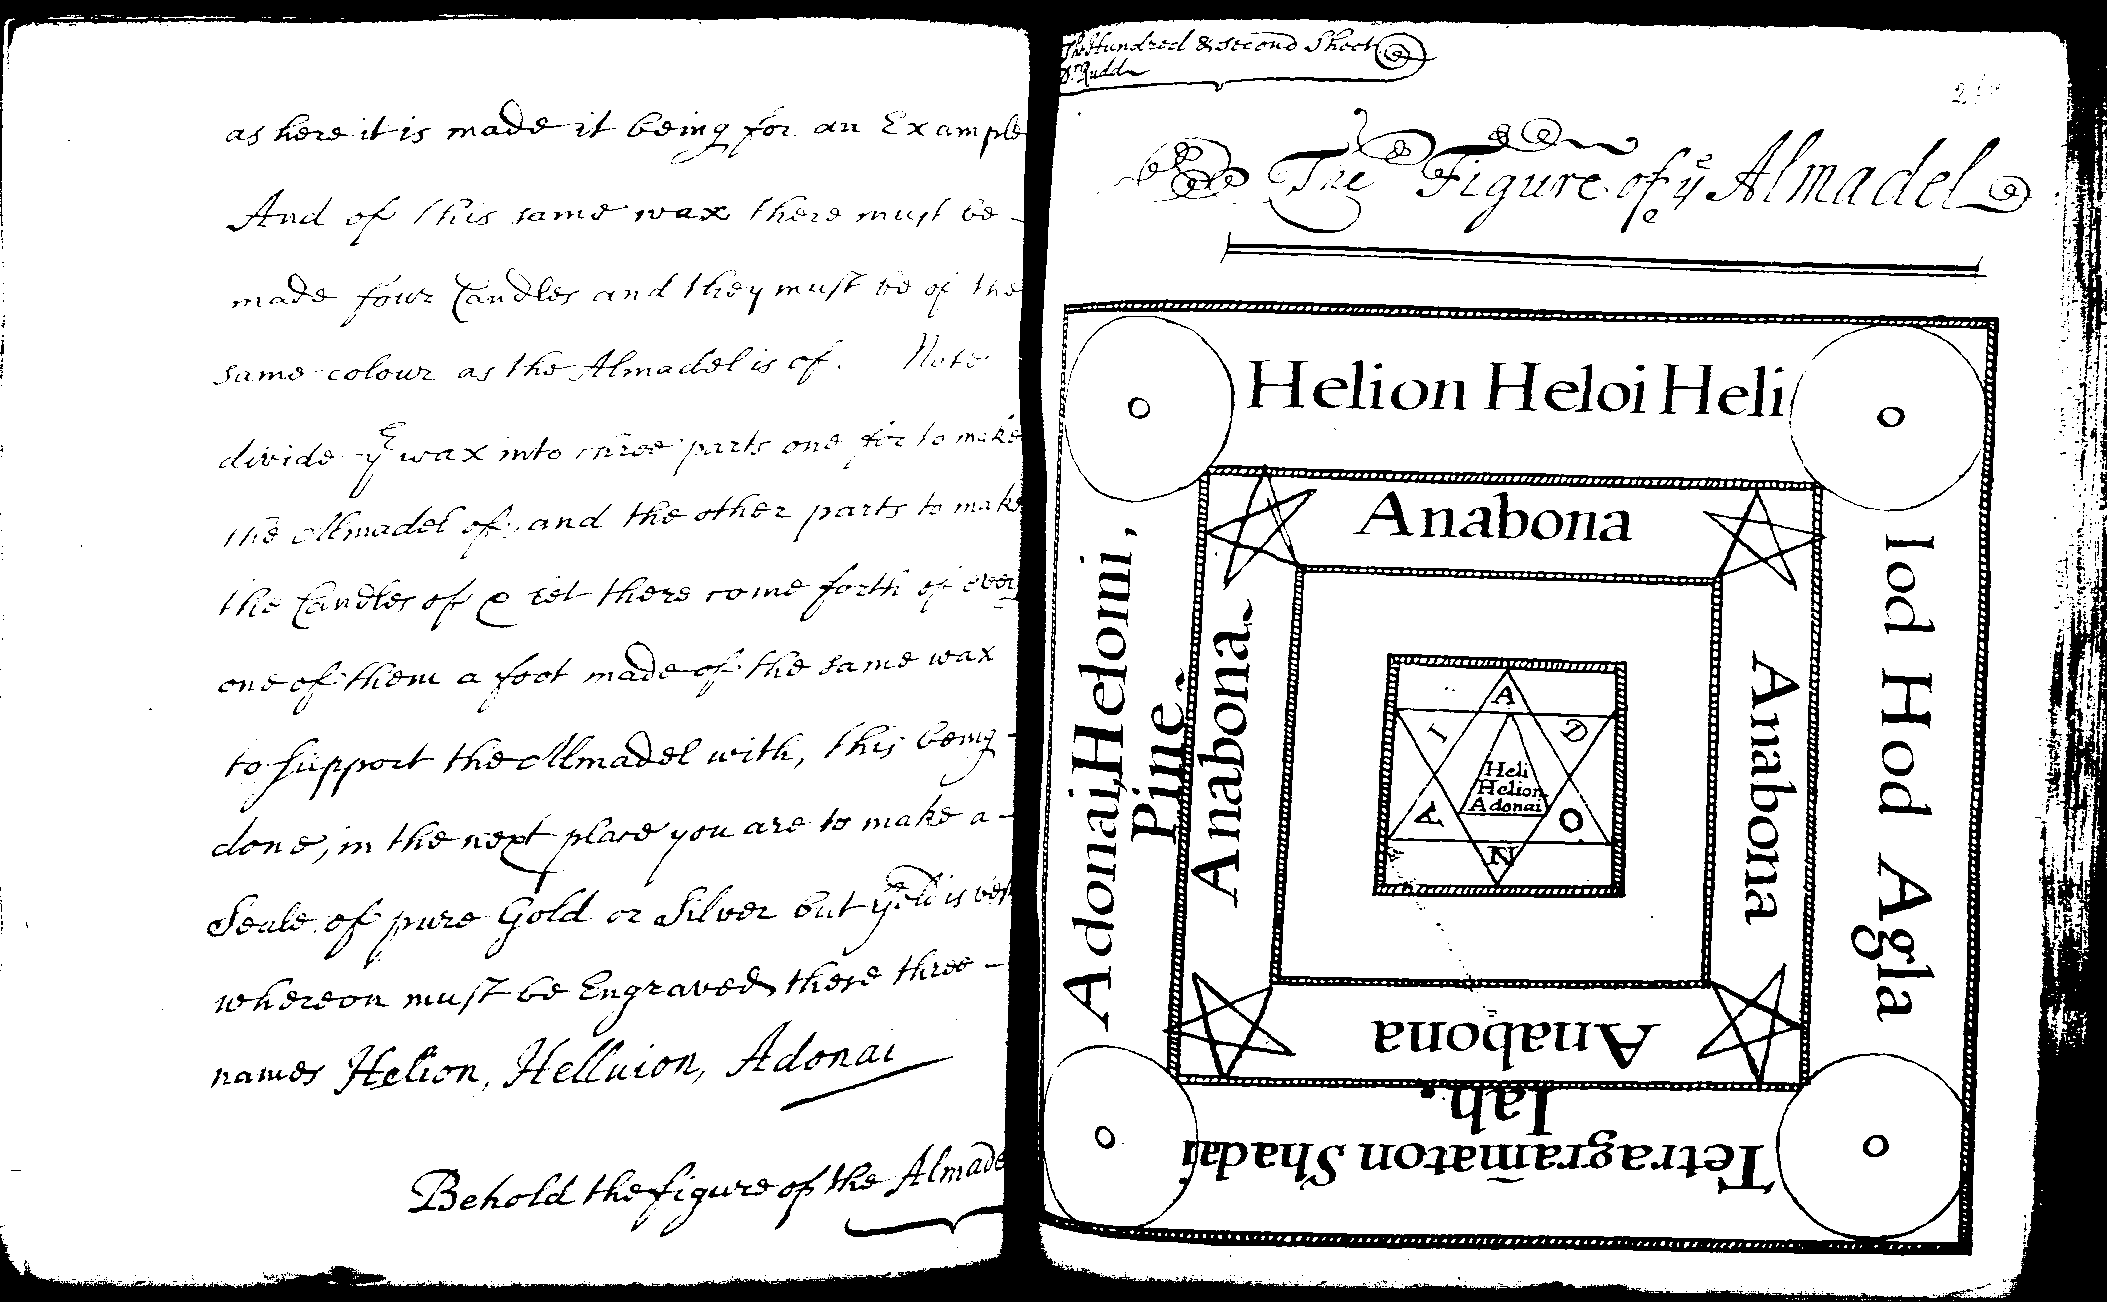 as here it is made it being for an Example
And of this same wax there must be -
made four Candles and they must be of the
same colour as the Almadel is of. Note
divide yͤ wax into three parts one for to make
the Almadel of, and the other parts to make
the Candles of & let there come forth of every
one of them a foot made of the same wax
to support the Almadel with, this being -
done, in the next place you are to make a -
Seale of pure Gold or Silver but is best
whereon must be Engraved these three -
names Helion, Helluion, Adonai
Behold the figure of the Almadel
The Hundred & second Sheet
Dʳ Rudd
The Figure of yͤ Almadel
Helion Heloi Heli
Iod Hod Agla
Tetragram̄aton Shadai
Jah.
Adonai, Helomi,
Pine
Anabona
Anabona
Anabona
Anabona
A
D
O
N
A
I
Heli
Helion
Adonai